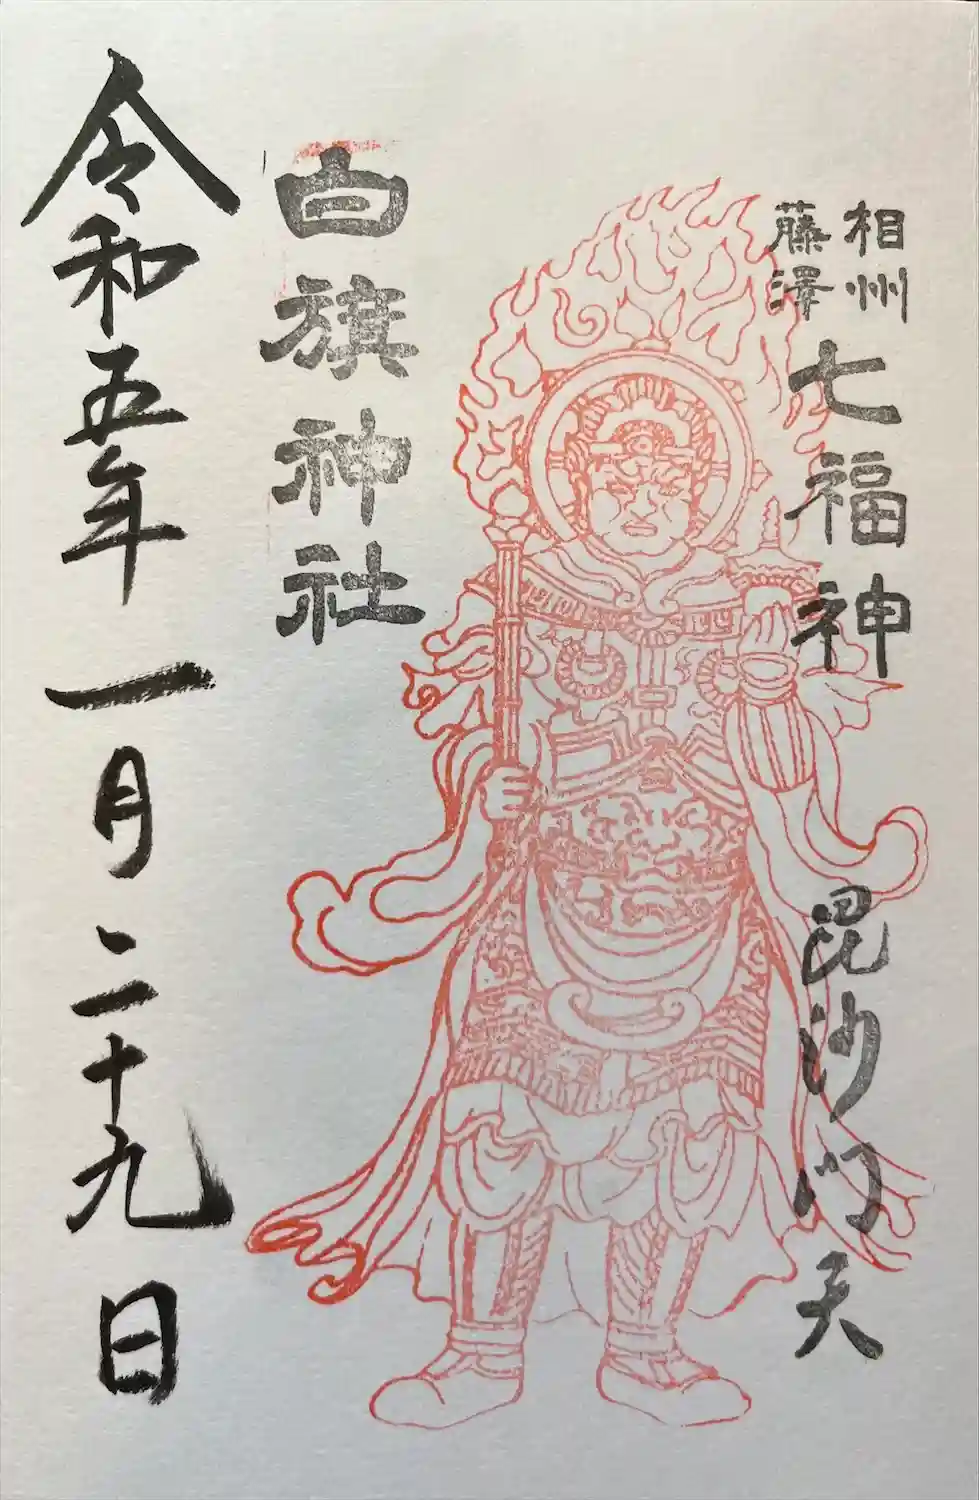 相州
藤澤
七福神
毘沙門天
白旗神社
令和五年一月二十九日